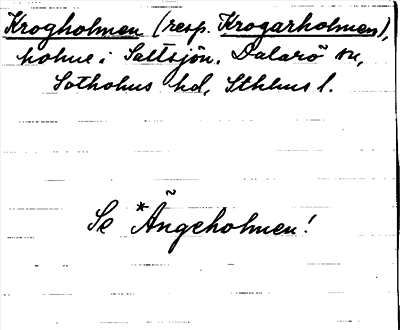 Krogholmen (resp. Krogarholmen),
holme i Saltsjön. Dalarö sn,
Sotholms hd, Sthlms l.
Se *Ängeholmen!